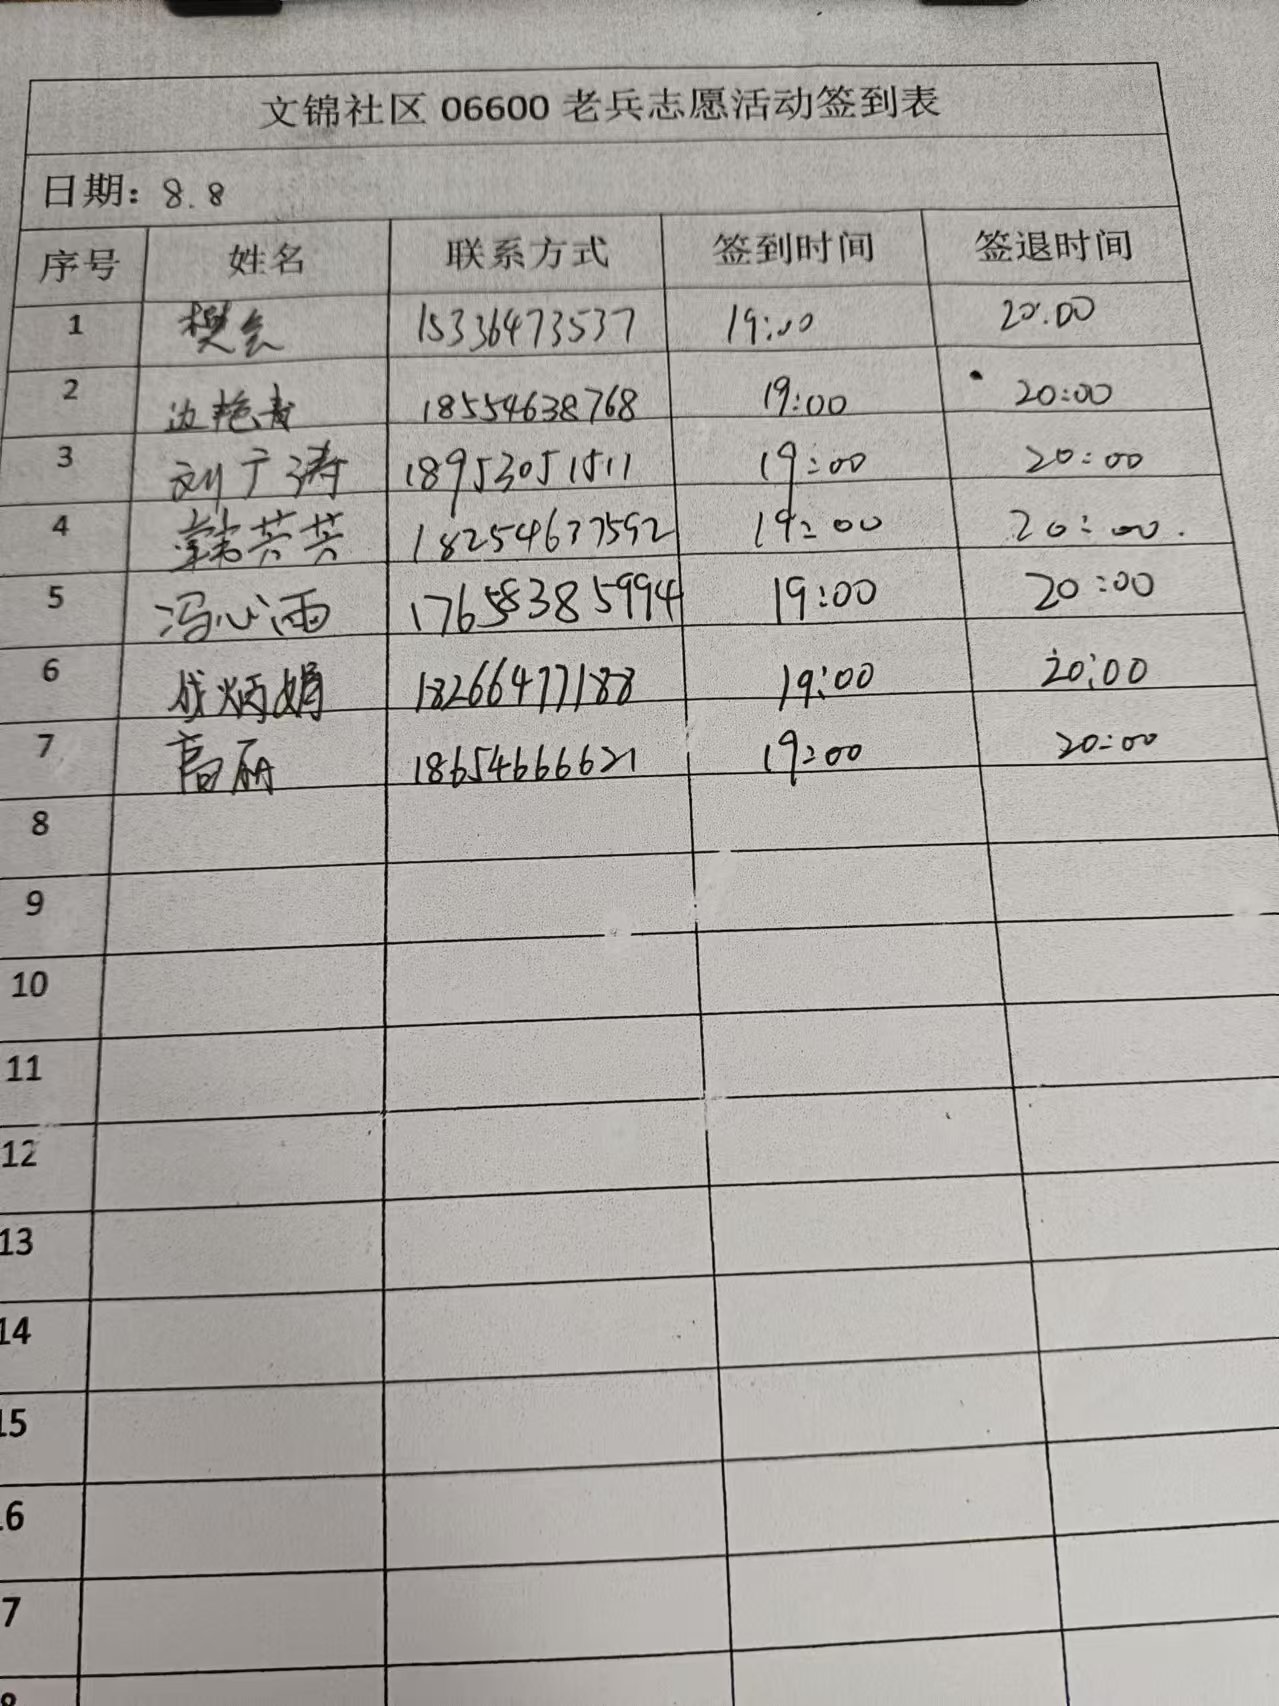 文锦社区 06600 老兵志愿活动签到表
日期: 8.8
序号 姓名 联系方式 签到时间 签退时间
1 樊会 15336473537 19:00 20:00
2 边艳青 18554638768 19:00 20:00
3 刘广涛 18953051511 19:00 20:00
4 韩芸芸 18254637592 19:00 20:00.
5 冯心雨 17658385994 19:00 20:00
6 成炳娟 18266477188 19:00 20:00
7 高丽 18654666621 19:00 20:00
8
9
10
11
12
13
14
15
16
7
8